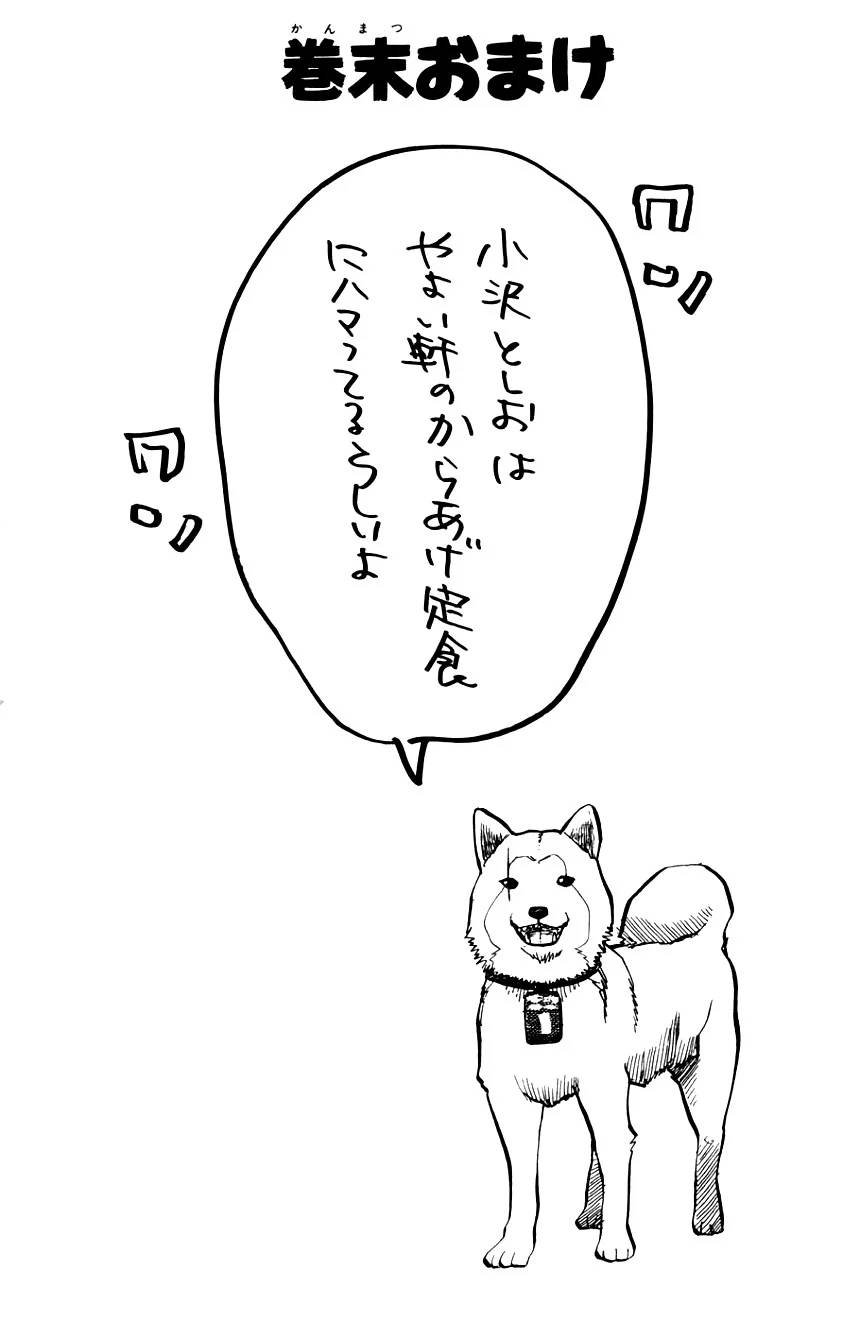 かんまつ
巻末おまけ
ワン
小沢としおは
やよい軒のからあげ定食
にハマってるらしいよ
ワン